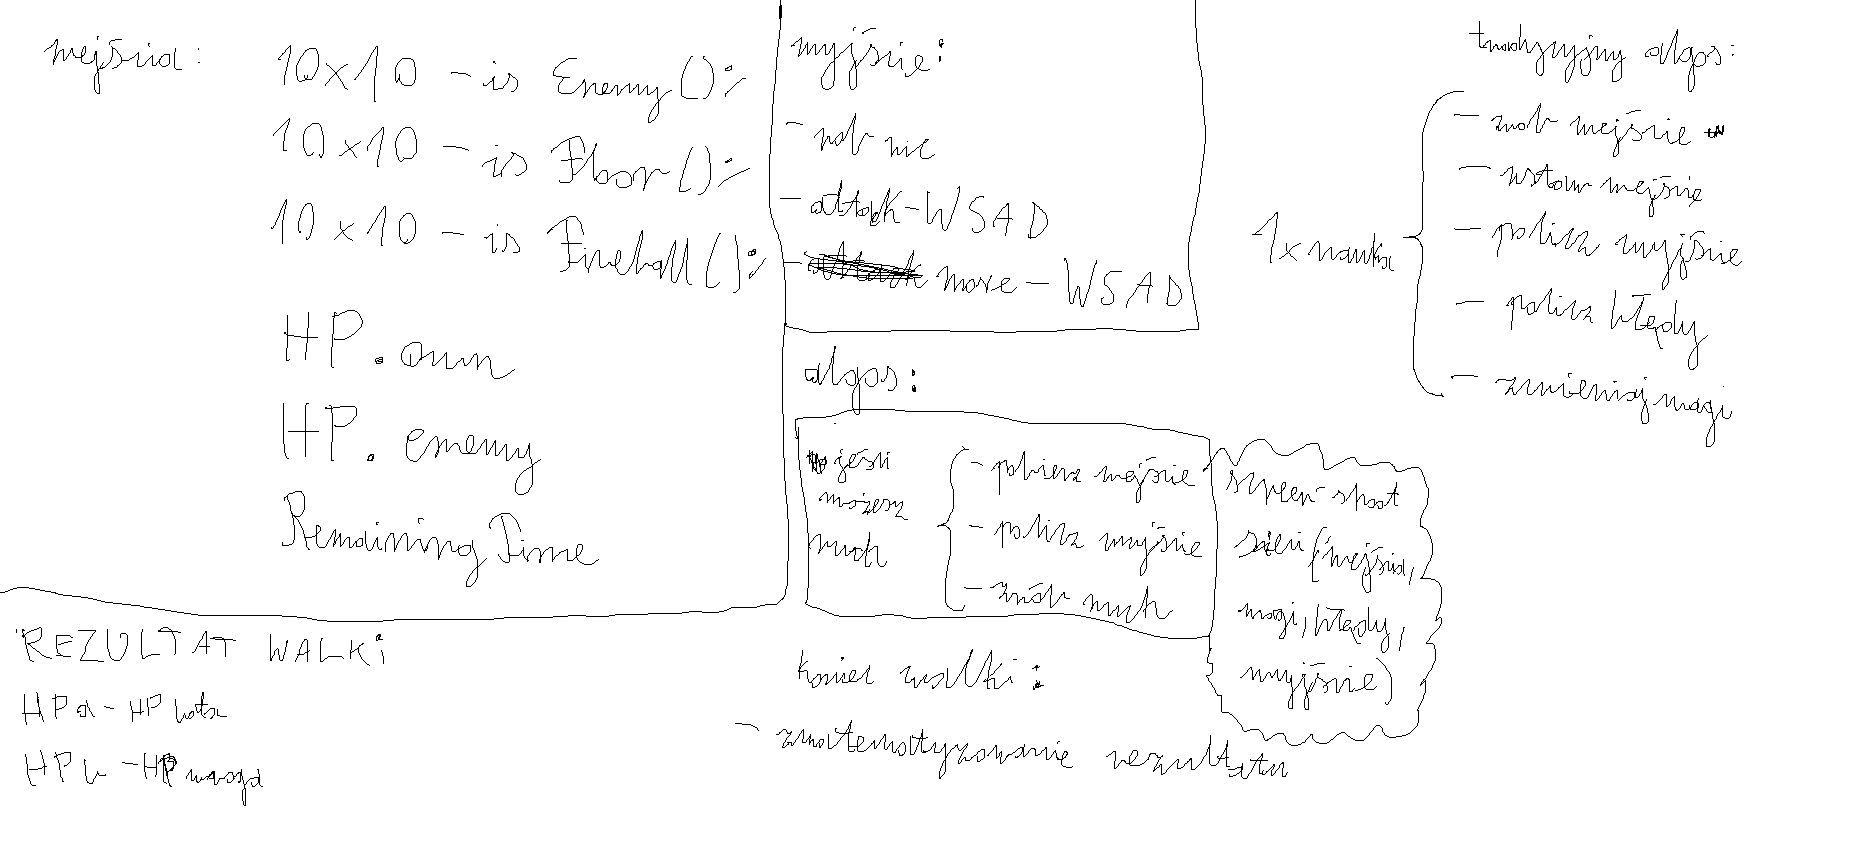 wejścia:
10x10 - is Enemy():
10x10 - is Floor():
10x10 - is Fireball():
HP.own
HP.enemy
Remaining Time
wyjście:
- rób nic
- attack - WSAD
- move - WSAD
algos:
jeśli
możesz
ruch
- pobierz wejście
- policz wyjście
- zrób ruch
screen shoot
sieci (wejścia,
wagi, błędy,
wyjście)
koniec walki:
- zmatematyzowanie rezultatu
tradycyjny algos:
1x nauka
- zrob wejście
- wstaw wejście
- policz wyjście
- policz błędy
- zmieniaj wagi
REZULTAT WALKi
HPa - HP bota
HPw - HP wroga